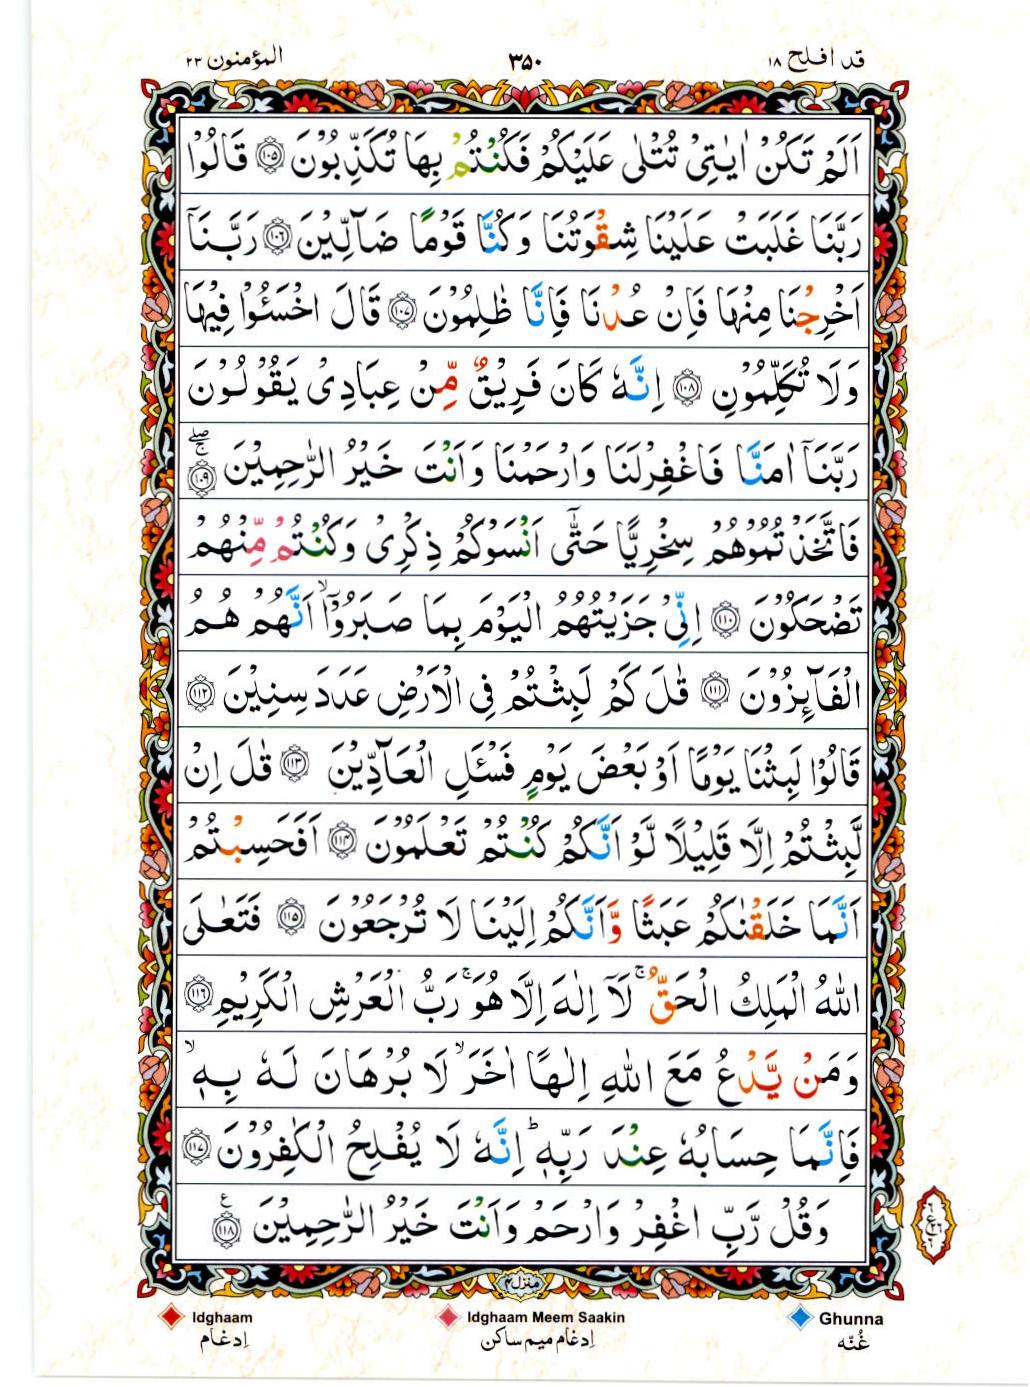 المؤمنون ٢٣ ٣٥٠ قد افلح ١٨
اَلَمْ تَكُنْ اٰيٰتِیْ تُتْلٰى عَلَيْكُمْ فَكُنْتُمْ بِهَا تُكَذِّبُوْنَ ۝١٠٥ قَالُوْا
رَبَّنَا غَلَبَتْ عَلَيْنَا شِقْوَتُنَا وَكُنَّا قَوْمًا ضَآلِّيْنَ ۝١٠٦ رَبَّنَاۤ
اَخْرِجْنَا مِنْهَا فَاِنْ عُدْنَا فَاِنَّا ظٰلِمُوْنَ ۝١٠٧ قَالَ اخْسَـُٔوْا فِيْهَا
وَلَا تُكَلِّمُوْنِ ۝١٠٨ اِنَّهٗ كَانَ فَرِيْقٌ مِّنْ عِبَادِیْ يَقُوْلُوْنَ
رَبَّنَاۤ اٰمَنَّا فَاغْفِرْلَنَا وَارْحَمْنَا وَاَنْتَ خَيْرُ الرّٰحِمِيْنَ ۝١٠٩ ۚۖ
فَاتَّخَذْتُمُوْهُمْ سِخْرِيًّا حَتّٰۤى اَنْسَوْكُمْ ذِكْرِیْ وَكُنْتُمْ مِّنْهُمْ
تَضْحَكُوْنَ ۝١١٠ اِنِّیْ جَزَيْتُهُمُ الْيَوْمَ بِمَا صَبَرُوْۤا ۙ اَنَّهُمْ هُمُ
الْفَآىِٕزُوْنَ ۝١١١ قٰلَ كَمْ لَبِثْتُمْ فِی الْاَرْضِ عَدَدَ سِنِيْنَ ۝١١٢
قَالُوْا لَبِثْنَا يَوْمًا اَوْ بَعْضَ يَوْمٍ فَسْـَٔلِ الْعَآدِّيْنَ ۝١١٣ قٰلَ اِنْ
لَّبِثْتُمْ اِلَّا قَلِيْلًا لَّوْ اَنَّكُمْ كُنْتُمْ تَعْلَمُوْنَ ۝١١٤ اَفَحَسِبْتُمْ
اَنَّمَا خَلَقْنٰكُمْ عَبَثًا وَّاَنَّكُمْ اِلَيْنَا لَا تُرْجَعُوْنَ ۝١١٥ فَتَعٰلَى
اللّٰهُ الْمَلِكُ الْحَقُّ ۚ لَاۤ اِلٰهَ اِلَّا هُوَ ۚ رَبُّ الْعَرْشِ الْكَرِيْمِ ۝١١٦
وَمَنْ يَّدْعُ مَعَ اللّٰهِ اِلٰهًا اٰخَرَ ۙ لَا بُرْهَانَ لَهٗ بِهٖ ۙ
فَاِنَّمَا حِسَابُهٗ عِنْدَ رَبِّهٖ ؕ اِنَّهٗ لَا يُفْلِحُ الْكٰفِرُوْنَ ۝١١٧
وَقُلْ رَّبِّ اغْفِرْ وَارْحَمْ وَاَنْتَ خَيْرُ الرّٰحِمِيْنَ ۝١١٨ ع
منزل ۴
Idghaam Idghaam Meem Saakin Ghunna
اِدغام اِدغام میم ساکن غُنّه